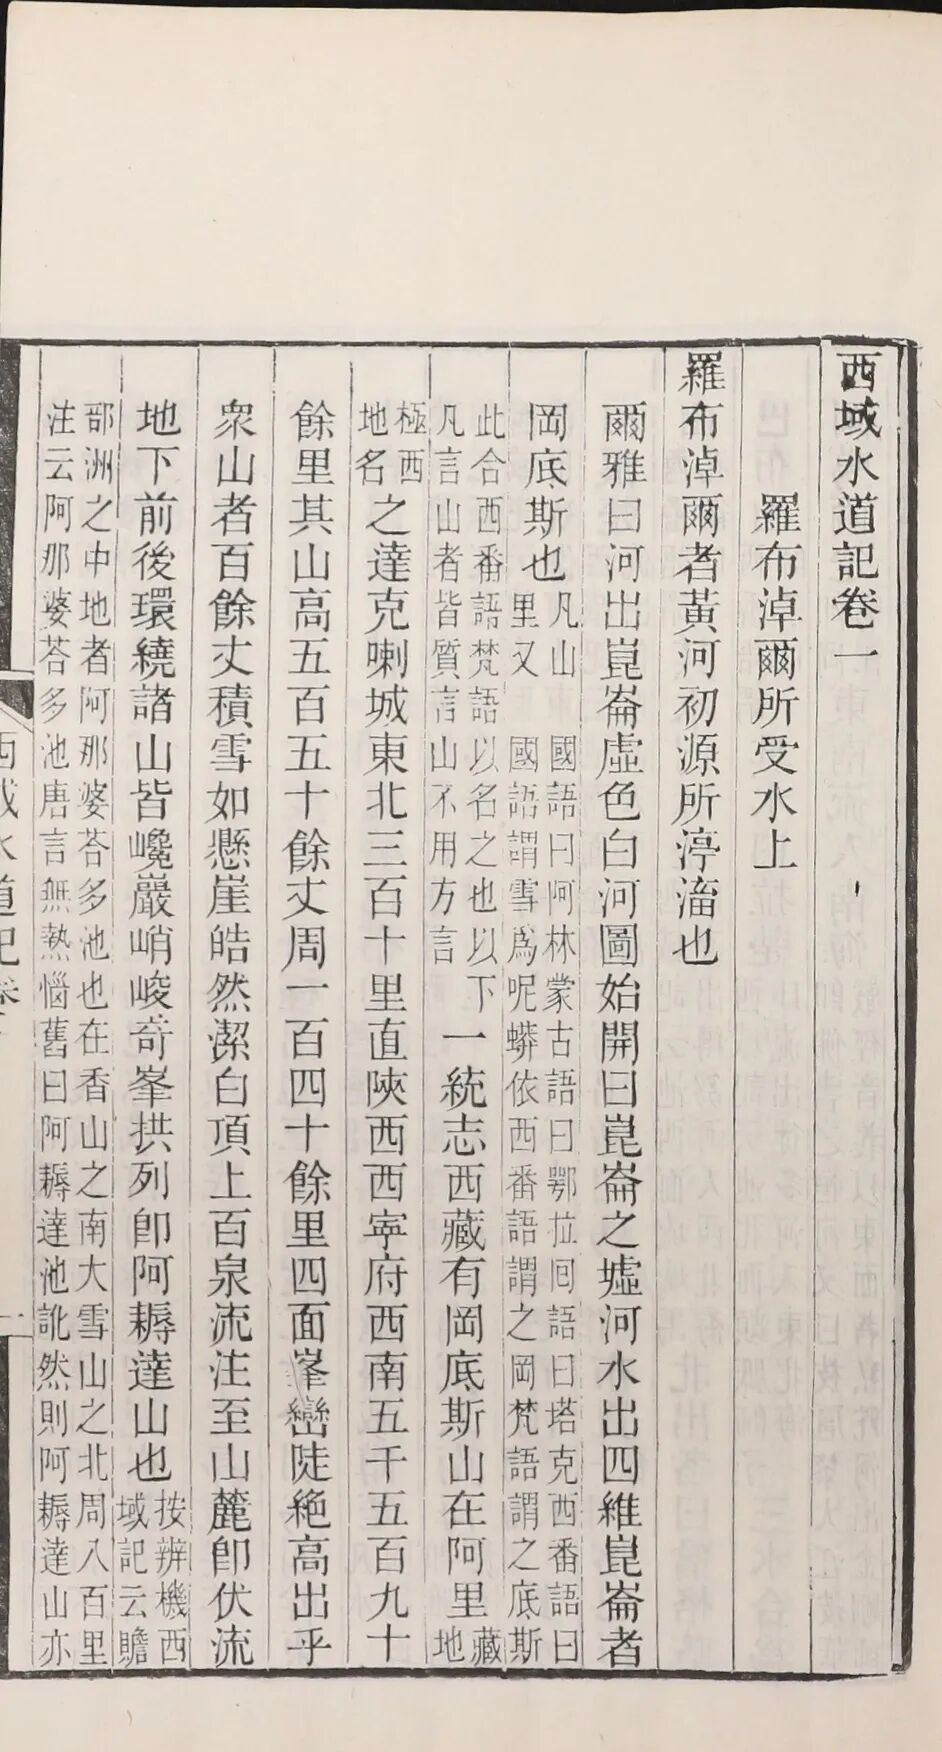 西域水道記卷一
羅布淖爾所受水上
羅布淖爾者黃河初源所渟滀也
爾雅曰河出崑崙虛色白河圖始開曰崑崙之墟河水出四維崑崙者
岡底斯也凡山國語曰阿林蒙古語曰鄂拉囘語曰塔克西番語曰
里又國語謂雪爲呢蟒依西番語謂之岡梵語謂之底斯
此合西番語梵語以名之也以下
凡言山者皆質言山不用方言
一統志西藏有岡底斯山在阿里藏
地
極西
地名
之達克喇城東北三百十里直陜西西寧府西南五千五百九十
餘里其山高五百五十餘丈周一百四十餘里四面峯巒陡絶高出乎
衆山者百餘丈積雪如懸崖皓然潔白頂上百泉流注至山麓卽伏流
地下前後環繞諸山皆巉巖峭峻奇峯拱列卽阿耨達山也按辨機西
域記云贍
部洲之中地者阿那婆荅多池也在香山之南大雪山之北周八百里
注云阿那婆荅多池唐言無熱惱舊曰阿耨達池訛然則阿耨達山亦
西域水道記卷一
一